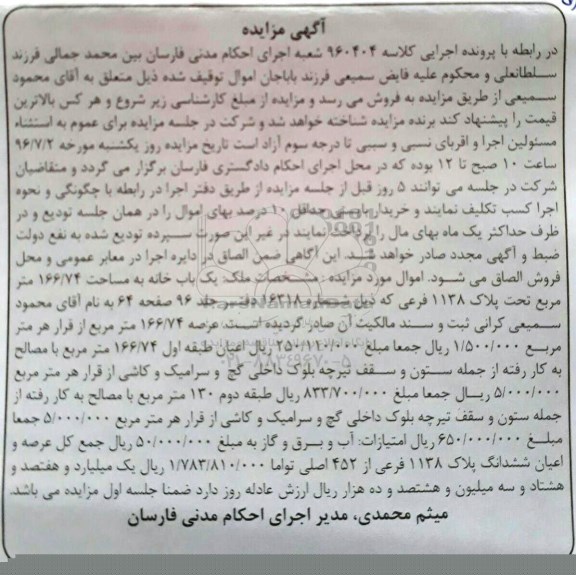 آگهی مزایده
در رابطه با پرونده اجرایی کلاسه ۹۶۰۴۰۴ شعبه اجرای احکام مدنی فارسان بین محمد جمالی فرزند
سلطانعلی و محکوم علیه فایض سمیعی فرزند باباجان اموال توقیف شده ذیل متعلق به آقای محمود
سمیعی از طریق مزایده به فروش می رسد و مزایده از مبلغ کارشناسی زیر شروع و هر کس بالاترین
قیمت را پیشنهاد کند برنده مزایده شناخته خواهد شد و شرکت در جلسه مزایده برای عموم به استثناء
مسئولین اجرا و اقربای نسبی و سببی تا درجه سوم آزاد است تاریخ مزایده روز یکشنبه مورخه ۹۶/۷/۲
ساعت ۱۰ صبح تا ۱۲ بوده که در محل اجرای احکام دادگستری فارسان برگزار می گردد و متقاضیان
شرکت در جلسه می توانند ۵ روز قبل از جلسه مزایده از طریق دفتر اجرا در رابطه با چگونگی و نحوه
اجرا کسب تکلیف نمایند و خریدار بایستی حداقل ۱۰ درصد بهای اموال را در همان جلسه تودیع و در
ظرف حداکثر یک ماه بهای مال را پرداخت نمایند در غیر این صورت سپرده تودیع شده به نفع دولت
ضبط و آگهی مجدد صادر خواهد شد. این آگاهی ضمن الصاق در دایره اجرا در معابر عمومی و محل
فروش الصاق می شود. اموال مورد مزایده: مشخصات ملک: یک باب خانه به مساحت ۱۶۶/۷۴ متر
مربع تحت پلاک ۱۱۳۸ فرعی که ذیل شماره ۱۶۳۱۸ دفتر جلد ۹۶ صفحه ۶۴ به نام آقای محمود
سمیعی کرانی ثبت و سند مالکیت آن صادر گردیده است. عرصه ۱۶۶/۷۴ متر مربع از قرار هر متر
مربع ۱/۵۰۰/۰۰۰ ریال جمعا مبلغ ۲۵۰/۱۱۰/۰۰۰ ریال اعیان طبقه اول ۱۶۶/۷۴ متر مربع با مصالح
به کار رفته از جمله ستون و سقف تیرچه بلوک داخلی گچ و سرامیک و کاشی از قرار هر متر مربع
۵/۰۰۰/۰۰۰ ریال جمعا مبلغ ۸۳۳/۷۰۰/۰۰۰ ریال طبقه دوم ۱۳۰ متر مربع با مصالح به کار رفته از
جمله ستون و سقف تیرچه بلوک داخلی گچ و سرامیک و کاشی از قرار هر متر مربع ۵/۰۰۰/۰۰۰ جمعا
مبلغ ۶۵۰/۰۰۰/۰۰۰ ریال امتیازات: آب و برق و گاز به مبلغ ۵۰/۰۰۰/۰۰۰ ریال جمع کل عرصه و
اعیان ششدانگ پلاک ۱۱۳۸ فرعی از ۴۵۲ اصلی تواما ۱/۷۸۳/۸۱۰/۰۰۰ ریال یک میلیارد و هفتصد و
هشتاد و سه میلیون و هشتصد و ده هزار ریال ارزش عادله روز دارد ضمنا جلسه اول مزایده می باشد.
میثم محمدی، مدیر اجرای احکام مدنی فارسان